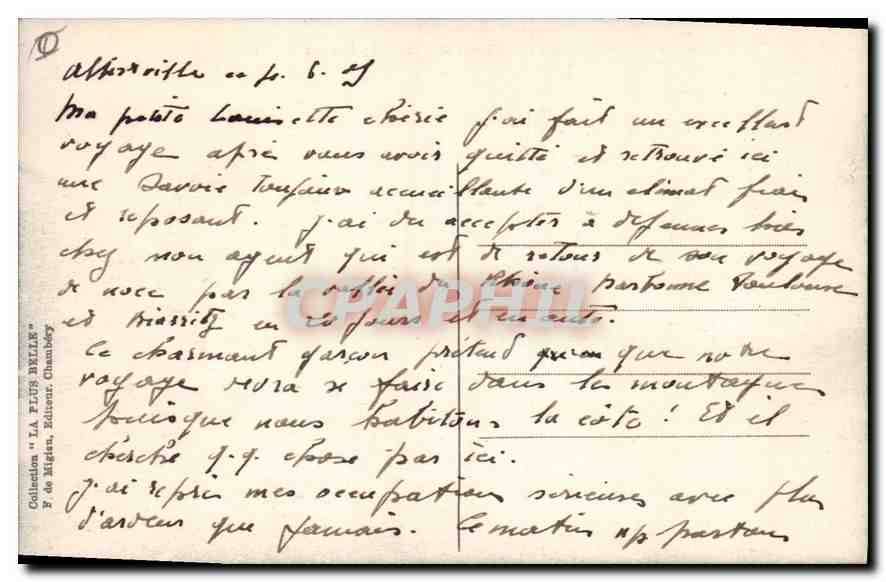 ①
Albertville
Ma petite Louisette chérie j'ai fait un excellent
voyage après vous avoir quitté et retrouvé ici
une Savoie toujours accueillante d'un climat frais
et reposant. J'ai du accepter à déjeuner hier
chez mon agent qui est de retour de son voyage
de noce par la vallée du Rhône Narbonne Toulouse
et Biarritz en 20 jours et en auto.
Ce charmant garçon prétend que notre
voyage devra se faire dans les montagnes
puisque nous habitons la côte! Et il
cherche q.q. chose par ici.
J'ai repris mes occupations sérieuses avec plus
d'ardeur que jamais. Ce matin ns partons
Collection "LA PLUS BELLE"
F. de Miglen, Editeur, Chambéry
CPAPHIL